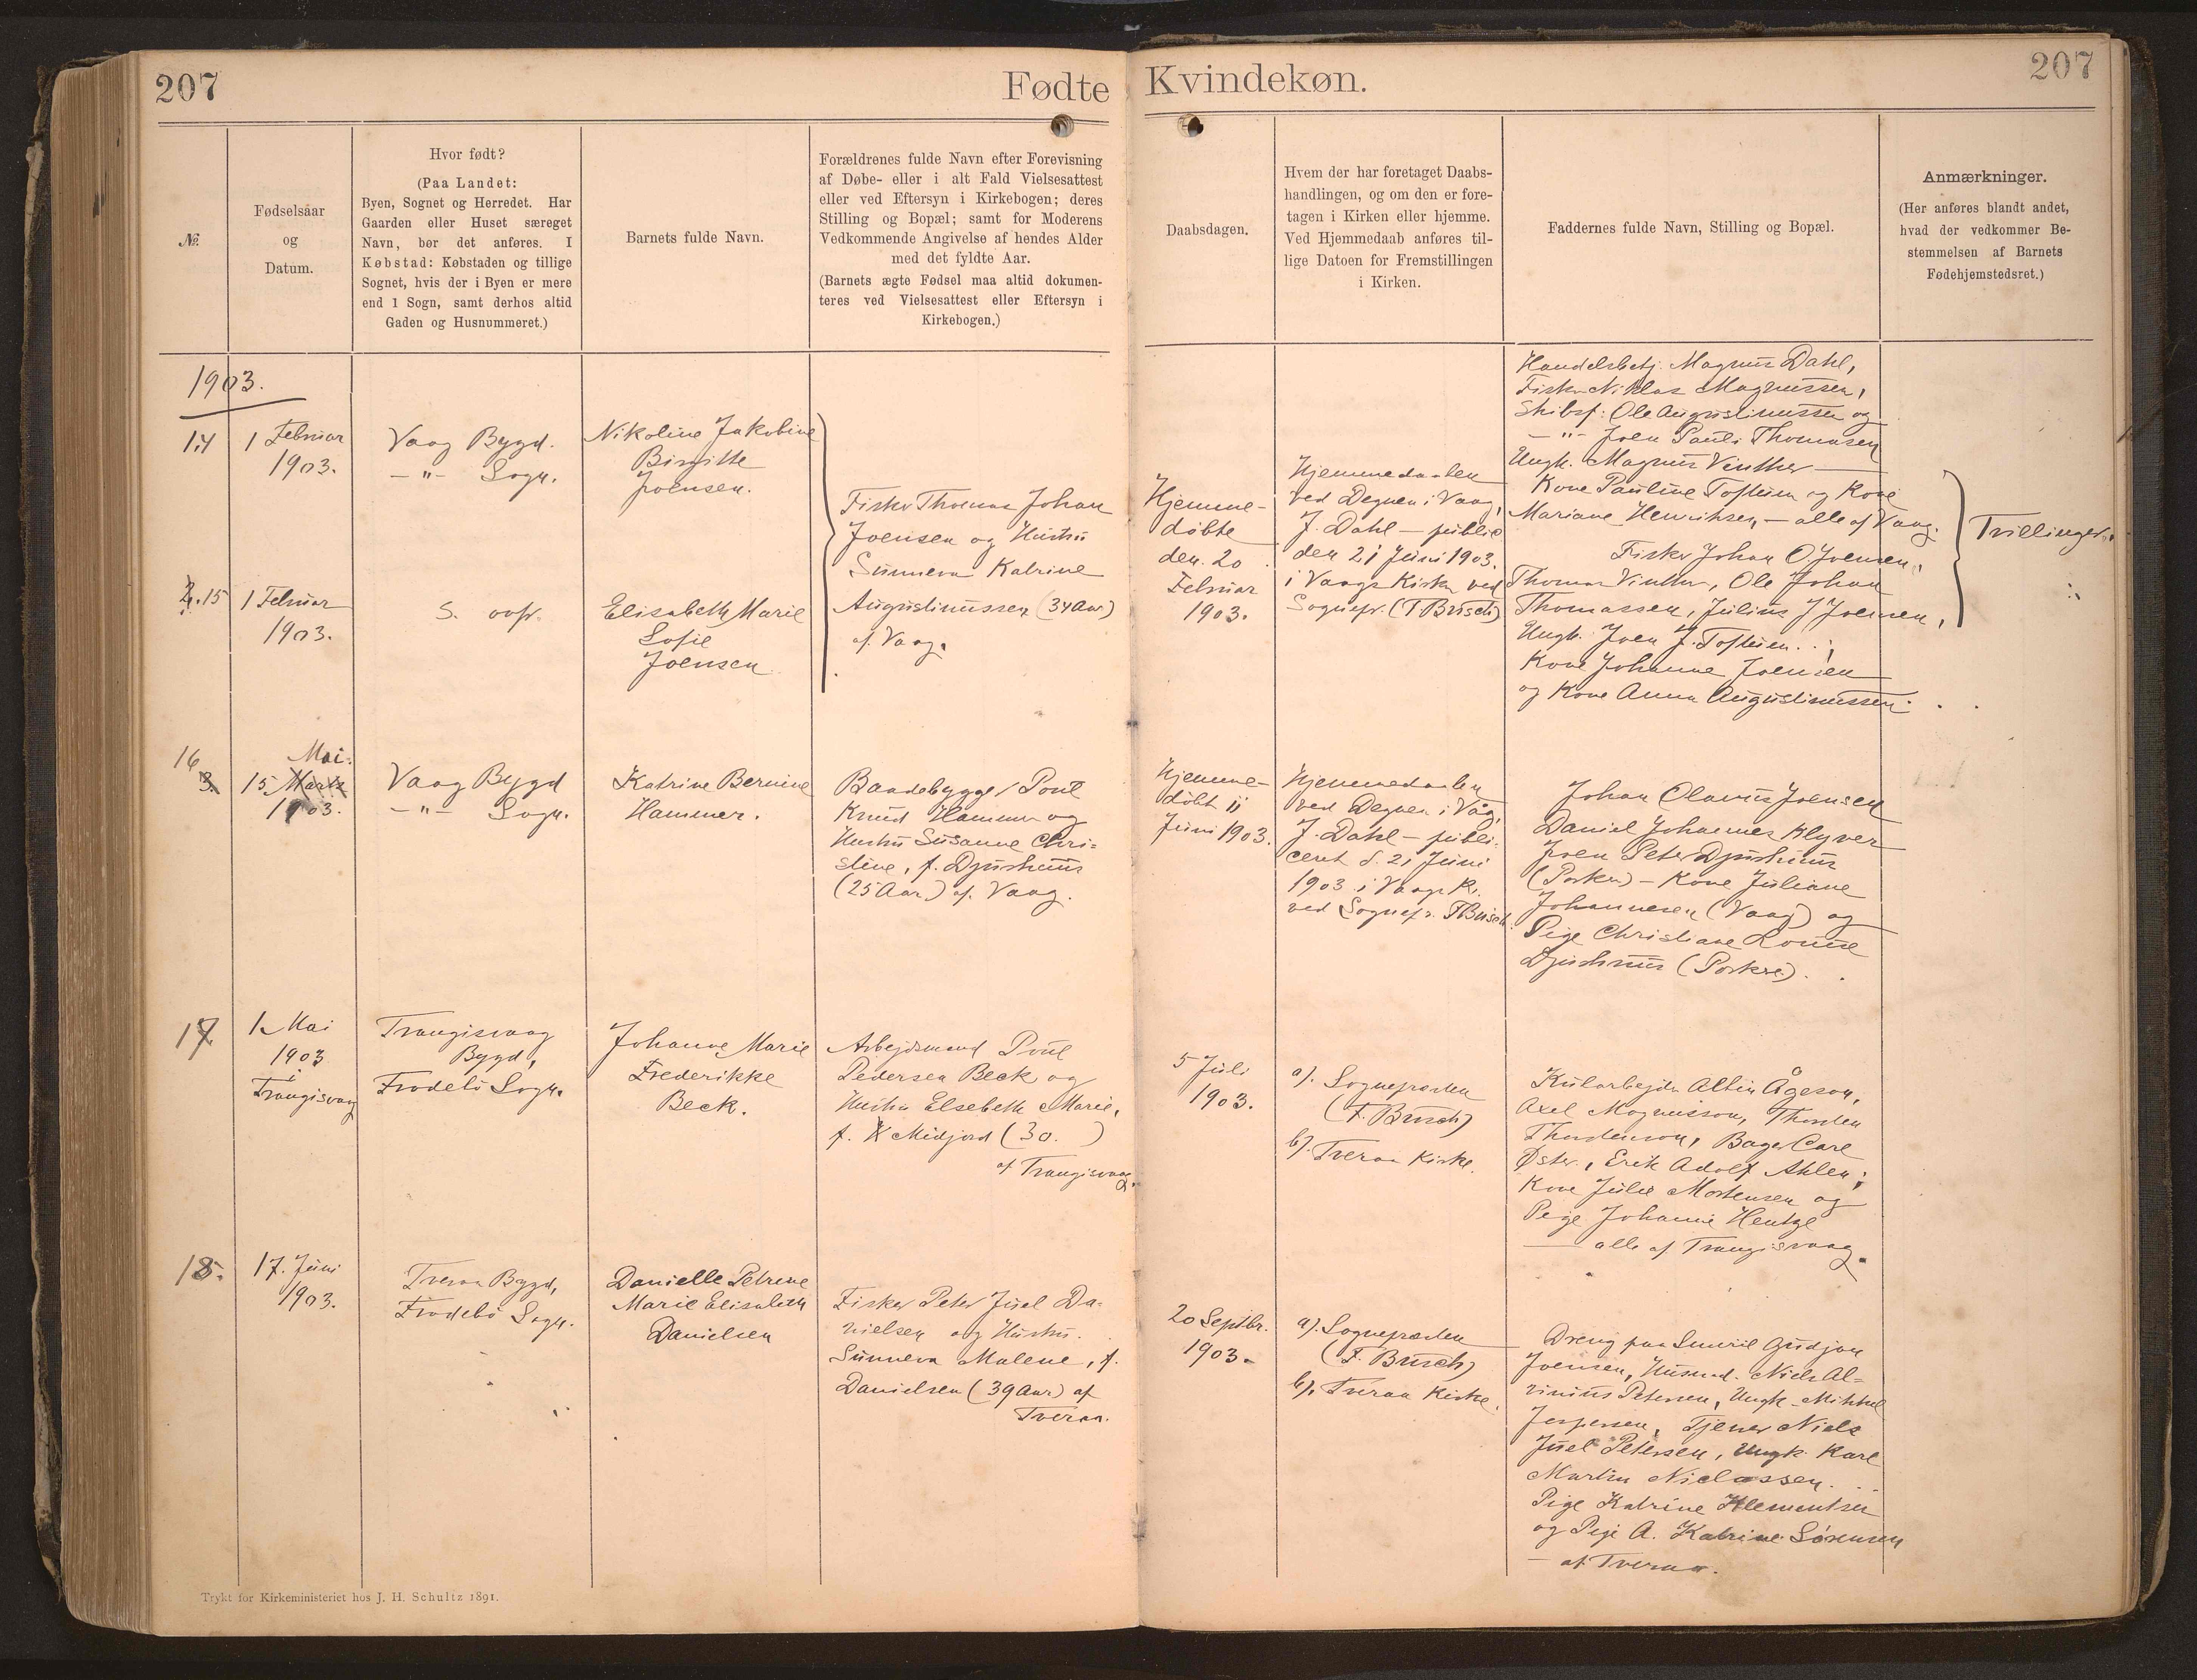 207
Fødte
Kvindekøn.
207
№.
Fødselsaar
og
Datum.
Hvor født?
(Paa Landet:
Byen, Sognet og Herredet. Har
Gaarden eller Huset særeget
Navn, bør det anføres. I
Købstad: Købstaden og tillige
Sognet, hvis der i Byen er mere
end 1 Sogn, samt derhos altid
Gaden og Husnummeret.)
Barnets fulde Navn.
Forældrenes fulde Navn efter Forevisning
af Døbe- eller i alt Fald Vielsesattest
eller ved Eftersyn i Kirkebogen; deres
Stilling og Bopæl; samt for Moderens
Vedkommende Angivelse af hendes Alder
med det fyldte Aar.
(Barnets ægte Fødsel maa altid dokumen-
teres ved Vielsesattest eller Eftersyn i
Kirkebogen.)
Daabsdagen.
Hvem der har foretaget Daabs-
handlingen, og om den er fore-
tagen i Kirken eller hjemme.
Ved Hjemmedaab anføres til-
lige Datoen for Fremstillingen
i Kirken.
Faddernes fulde Navn, Stilling og Bopæl.
Anmærkninger.
(Her anføres blandt andet,
hvad der vedkommer Be-
stemmelsen af Barnets
Fødehjemstedsret.)
1903.
14
1 Februar
1903.
Vaag Bygd.
—"— Sogn.
Nikoline Jakobine
Birgitte
Joensen.
Fisker Thomas Johan
Joensen og Hustru
Sunneva Katrine
Augustinussen (34 Aar)
af Vaag.
Hjemme-
døbte
den 20
Februar
1903.
Hjemmedaaben
ved Degnen i Vaag,
J. Dahl — public.
den 21 Juni 1903.
i Vaags Kirke ved
Sognepr. (F Busch)
Handelsbetj. Magnus Dahl,
Fisker Niklas Magnussen,
Skibsf: Ole Augustinussen og
—"— Joen Pauli Thomasen
Ungk. Magnus Vinther —
Kone Pauline Toftein og Kone
Mariane Henriksen, — alle af Vaag.
Trillinger.
15
1 Februar
1903.
S. ovfr.
Elisabeth Marie
Sofie
Joensen
Fisker Johan O Joensen,
Thomas Vinther, Ole Johan
Thomassen, Julius J Joensen,
Ungk. Joen J. Toftein.;
Kone Johanne Joensen
og Kone Anna Augustinussen.
16
3.
Mai.
15 Marts
1903.
Vaag Bygd
—"— Sogn.
Katrine Bernine
Hammer.
Baadebygger Poul
Knud Hammer og
Hustru Susanne Chri=
stine, f. Djurhuus
(25 Aar) af Vaag.
Hjemme-
døbt 11
Juni 1903.
Hjemmedaaben
ved Degnen i Våg,
J. Dahl — publi-
ceret d. 21 Juni
1903 i Vaags K.
ved Sognepr. F Busch.
Johan Olavus Joensen
Daniel Johannes Klyver
Joen Peter Djurhuus
(Porkere) — Kone Juliane
Johannesen (Vaag) og
Pige Christiane Louise
Djurhuus (Porkere).
17
1. Mai
1903
i
Trangisvaag
Trangisvaag
Bygd,
Frodebö Sogn.
Johanne Marie
Frederikke
Beck.
Arbejdsmand Poul
Pedersen Beck og
Hustru Elsebeth Marie,
f. Midjord (30. )
af Trangisvaag.
5 Juli
1903.
a). Sognepræsten
(F. Busch)
b). Tveraa Kirke.
Kularbejder Albin Ågeson,
Axel Magnusson, Thorsten
Thorstenson, Bager Carl
Øster, Erik Adolf Ahlen;
Kone Julie Mortensen og
Pige Johanne Hentze
— alle af Trangisvaag.
18.
17. Juni
1903.
Tveraa Bygd,
Frodebö Sogn.
Danielle Petrine
Marie Elisabeth
Danielsen
Fisker Peter Juel Da-
nielsen og Hustru.
Sunneva Malene, f.
Danielsen (39 Aar) af
Tveraa.
20 Septbr.
1903.
a). Sognepræsten
(F. Busch)
b). Tveraa Kirke.
Dreng paa Smiril Gudjon
Joensen, Husmd. Niels Al-
vinius Petersen, Ungk. Mikkel
Jespersen, Tjener Niels
Juel Petersen, Ungk. Karl
Martin Niclassen.
Pige Katrine Klementsen
og Pige A. Katrine Sörensen
— af Tveraa.
Trykt for Kirkeministeriet hos J. H. Schultz 1891.